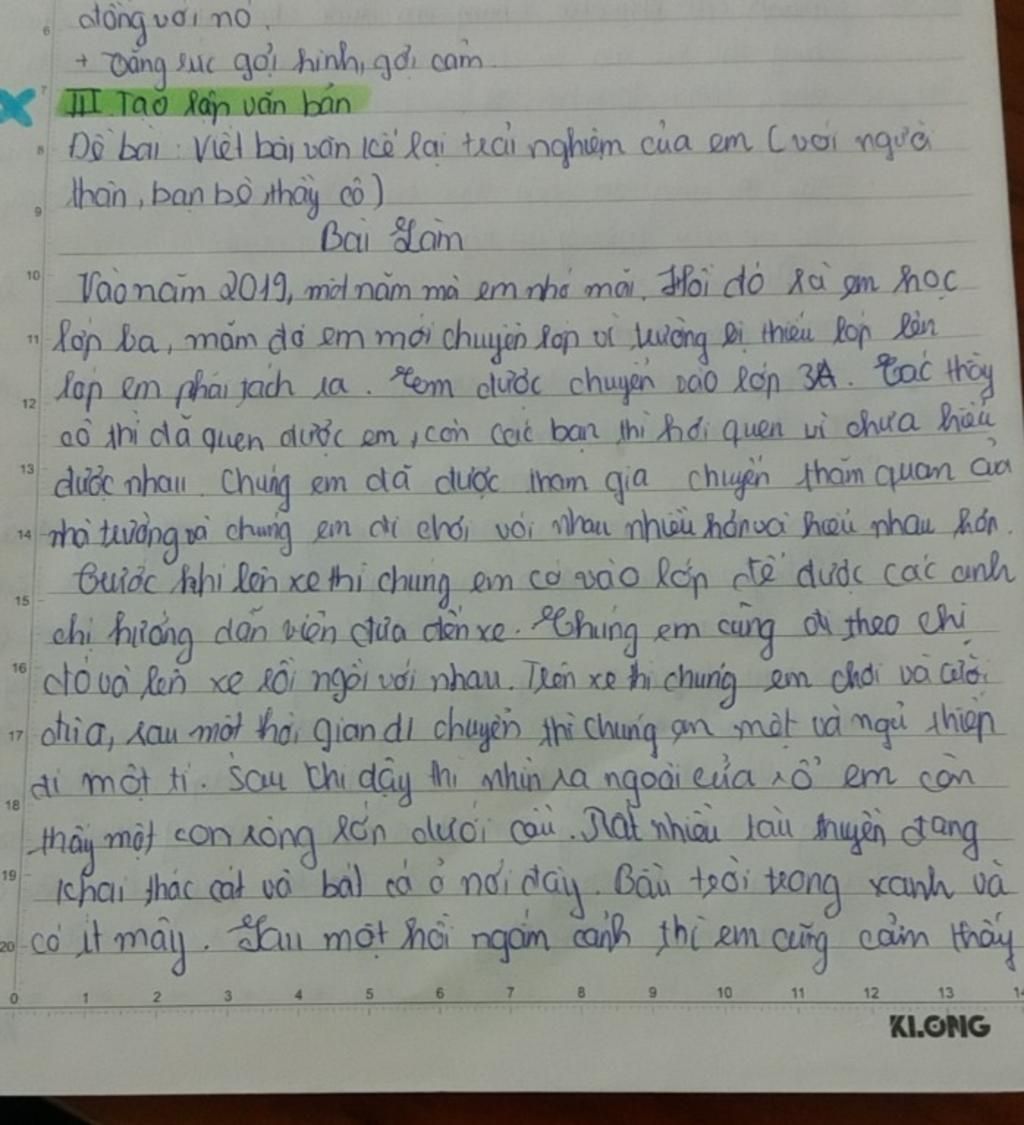 động với nó.
+ Tăng sức gợi hình, gợi cảm
III. Tạo lập văn bản
Đề bài: Viết bài văn kể lại trải nghiệm của em (với người
thân, bạn bè, thầy cô)
Bài làm
Vào năm 2019, một năm mà em nhớ mãi. Hồi đó là em học
lớp ba, năm đó em mới chuyển lớp vì trường bị thiếu lớp lên
lớp em phải tách ra. Em được chuyển vào lớp 3A. Các thầy
cô thì đã quen được em, còn các bạn thì hơi quen vì chưa hiểu
được nhau. Chúng em đã được tham gia chuyến thăm quan của
nhà trường và chúng em đi chơi với nhau nhiều hơn và hiểu nhau hơn.
Trước khi lên xe thì chúng em có vào lớp để được các anh
chị hướng dẫn viên đưa đến xe. Chúng em cũng đi theo chị
đó và lên xe rồi ngồi với nhau. Trên xe thì chúng em chơi và cười
đùa, sau một thời gian di chuyển thì chúng em mệt và ngủ thiếp
đi một tí. Sau khi dậy thì nhìn ra ngoài cửa sổ em còn
thấy một con sông lớn dưới cầu. Rất nhiều tàu thuyền đang
khai thác cát và bắt cá ở nơi đây. Bầu trời trong xanh và
có ít mây. Sau một hồi ngắm cảnh thì em cũng cảm thấy
6
7
8
9
10
11
12
13
14
15
16
17
18
19
20
0 1 2 3 4 5 6 7 8 9 10 11 12 13 14
KLONG